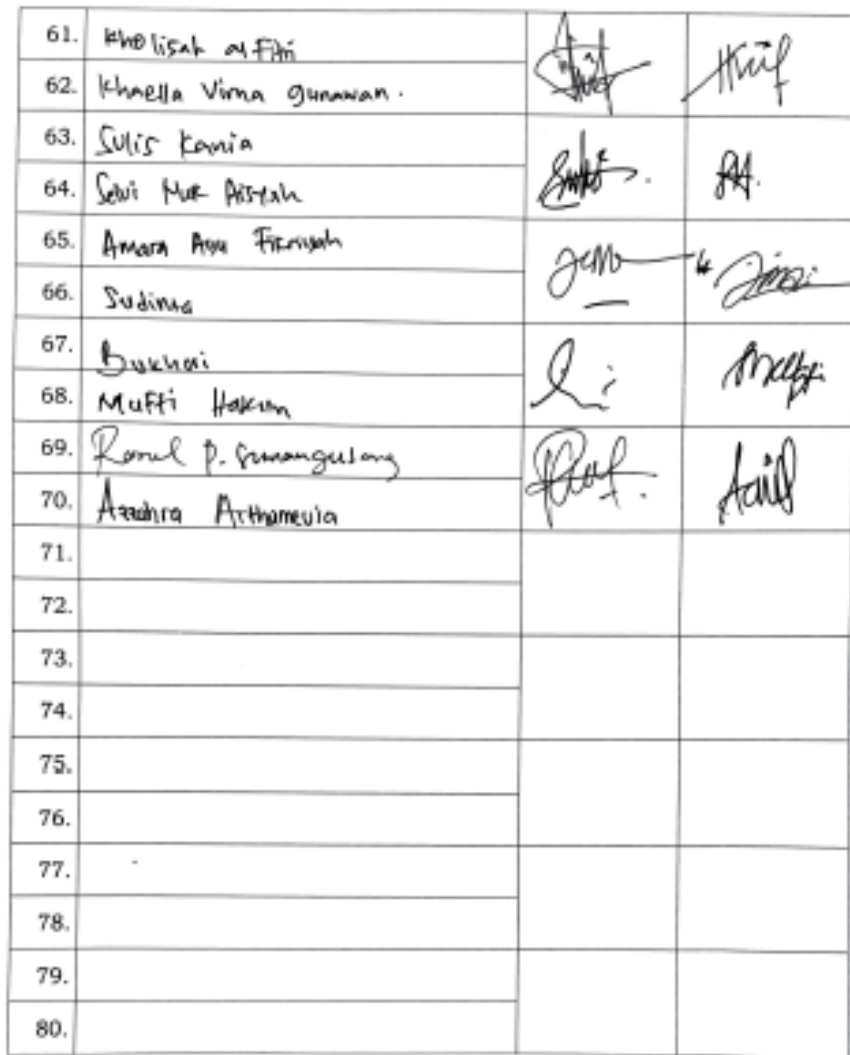 61. Kholisah al Fitri
62. Khaella Virna Gunawan.
63. Sulis Kania
64. Selvi Nur Aisyah
65. Amara Ayu Fitriyah
66. Sudinta
67. Bukhori
68. Mufti Hakim
69. Ramul P. Simangunsong
70. Azzahra Arthamevia
71.
72.
73.
74.
75.
76.
77.
78.
79.
80.